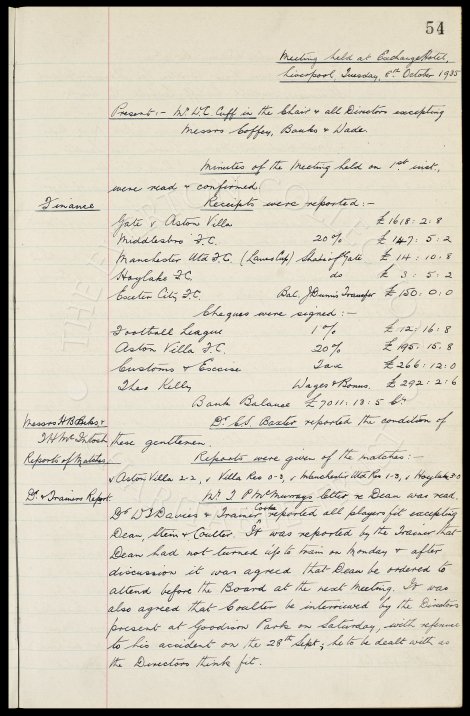 54
Meeting held at Exchange Hotel,
Liverpool, Tuesday, 8th October 1935
Present:- Mr W.C. Cuff in the Chair & all Directors excepting
Messrs Coffey, Banks & Wade.
Minutes of the Meeting held on 1st inst,
were read & confirmed.
Finance
Receipts were reported:-
Gate v Aston Villa £1618:2:8
Middlesbro F.C. 20% £147:5:2
Manchester Utd F.C. (Lancs Cup) Share of Gate £14:10:8
Hoylake F.C. do £3:5:2
Exeter City F.C. Bal. J Dunn's Transfer £150:0:0
Cheques were signed:-
Football League 1% £12:16:8
Aston Villa F.C. 20% £195:15:8
Customs & Excise Tax £266:12:0
Theo Kelly Wages & Bonus. £292:2:6
Bank Balance £7011:13:5 Cr
Messrs H Banks &
J H McIntosh
Dr. C.S. Baxter reported the condition of
these gentlemen.
Reports of Matches
Reports were given of the matches:-
v Aston Villa 2-2, v Villa Res 0-3, v Manchester Utd Res 1-3, v Hoylake 3-0
Dr. & Trainers Report
Mr. J P McMurrays letter re Dean was read.
Dr W J Davies & Trainer Cooke reported all players fit excepting
Dean, Stein & Coulter. It was reported by the Trainer that
Dean had not turned up to train on Monday & after
discussion it was agreed that Dean be ordered to
attend before the Board at the next Meeting. It was
also agreed that Coulter be interviewed by the Directors
present at Goodison Park on Saturday, with reference
to his accident on the 28th Sept, he to be dealt with as
the Directors think fit.